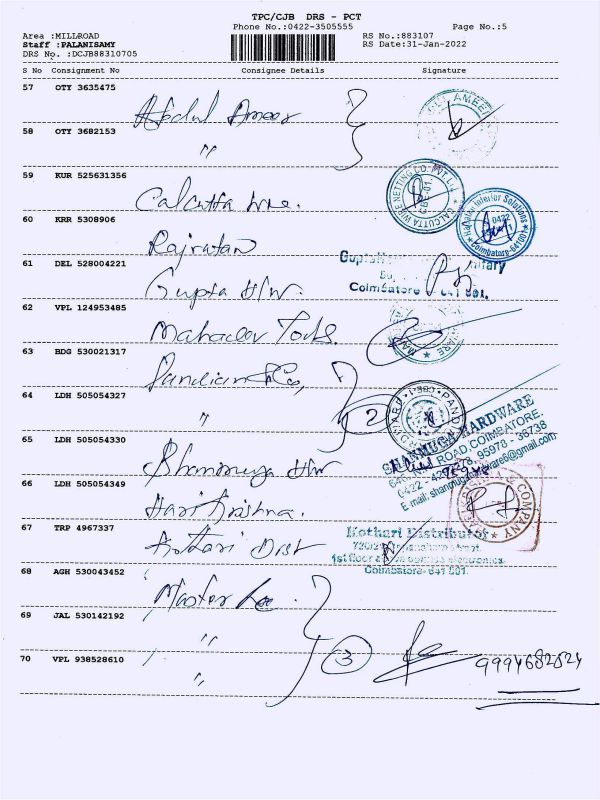 TPC/CJB DRS - PCT
Phone No.:0422-3505555 Page No.:5
Area :MILLROAD RS No.:883107
Staff :PALANISAMY RS Date:31-Jan-2022
DRS No. :DCJB88310705
S No Consignment No Consignee Details Signature
57 OTY 3635475
Abdul Ameer
AMEER
58 OTY 3682153
"
59 KUR 525631356
Calcutta wire.
CALCUTTA WIRE NETTING CO. PVT. LTD
CBE-01.
60 KRR 5308906
Rajratan
Interior Solutions
0422
Coimbatore-641001
61 DEL 528004221
Gupta H/W.
Coimbatore 641 001.
62 VPL 124953485
Mahadev Tools.
63 BDG 530021317
Pandian & Co,
64 LDH 505054327
"
2
65 LDH 505054330
Shanmuga H/W
SHANMUGA HARDWARE
ROAD, COIMBATORE.
95978 - 36738
E mail: shanmugahardware6@gmail.com
66 LDH 505054349
Hari Krishna.
& COMPANY
67 TRP 4967337
Kothari Dist
Kothari Distributor
1st floor electronics
Coimbatore- 641 001.
68 AGH 530043452
Master
69 JAL 530142192
"
3
70 VPL 938528610
"